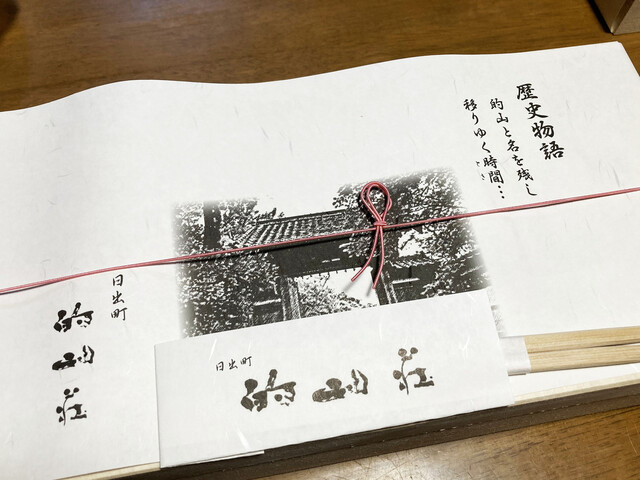 歴史物語
的山と名を残し
移りゆく時間…
とき
日出町
的山荘
日出町
的山荘